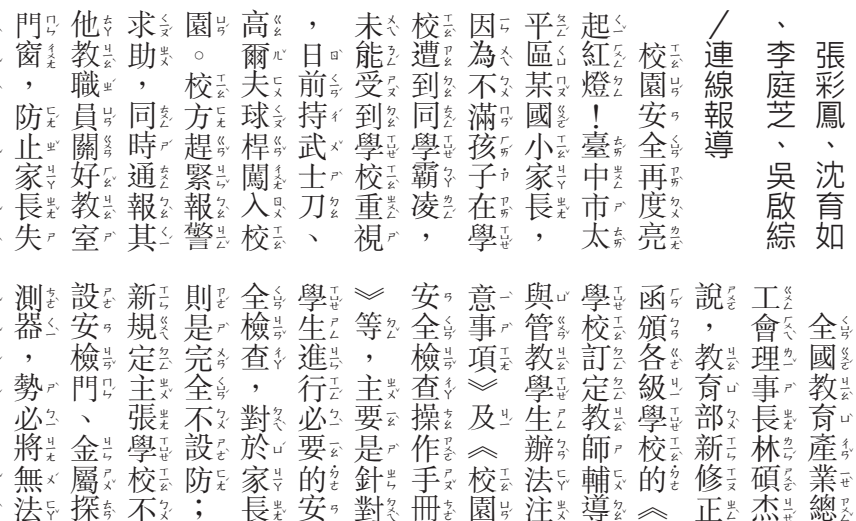 張彩鳳、沈育如
、李庭芝、吳啟綜
／連線報導
校園安全再度亮
起紅燈！臺中市太
平區某國小家長，
因為不滿孩子在學
校遭到同學霸凌，
未能受到學校重視
，日前持武士刀、
高爾夫球桿闖入校
園。校方趕緊報警
求助，同時通報其
他教職員關好教室
門窗，防止家長失
全國教育產業總
工會理事長林碩杰
說，教育部新修正
函頒各級學校的《
學校訂定教師輔導
與管教學生辦法注
意事項》及《校園
安全檢查操作手冊
》等，主要是針對
學生進行必要的安
全檢查，對於家長
則是完全不設防；
新規定主張學校不
設安檢門、金屬探
測器，勢必將無法